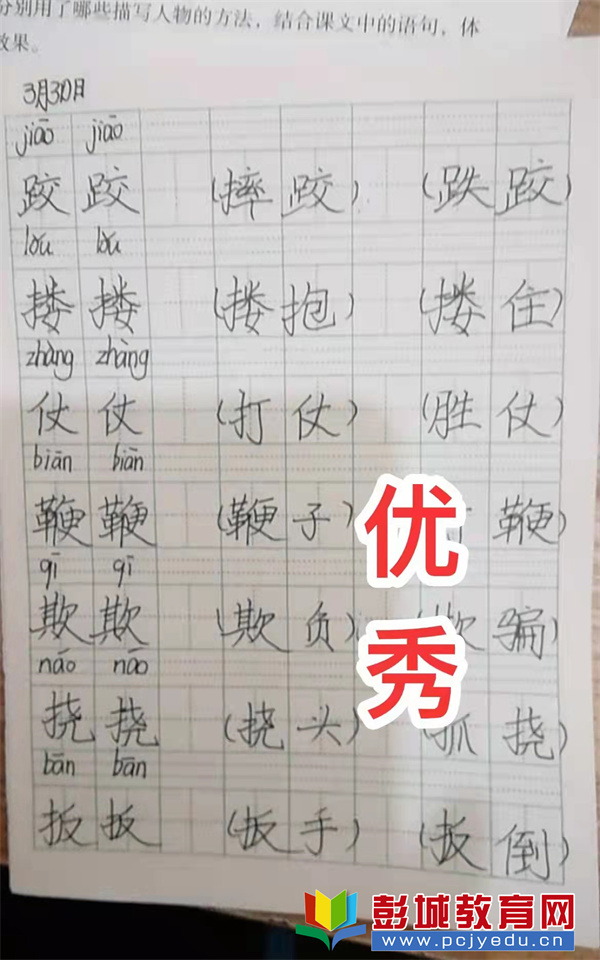 分别用了哪些描写人物的方法，结合课文中的语句，体
效果。
3月30日
jiāo jiāo
跤 跤 (摔 跤) (跌 跤)
lǒu lǒu
搂 搂 (搂 抱) (搂 住)
zhàng zhàng
仗 仗 (打 仗) (胜 仗)
biān biān
鞭 鞭 (鞭 子) 鞭)
qī qī
欺 欺 (欺 负) (欺 骗)
náo náo
挠 挠 (挠 头) (抓 挠)
bān bān
扳 扳 (扳 手) (扳 倒)
优
秀
彭城教育网
www.pcjyedu.cn